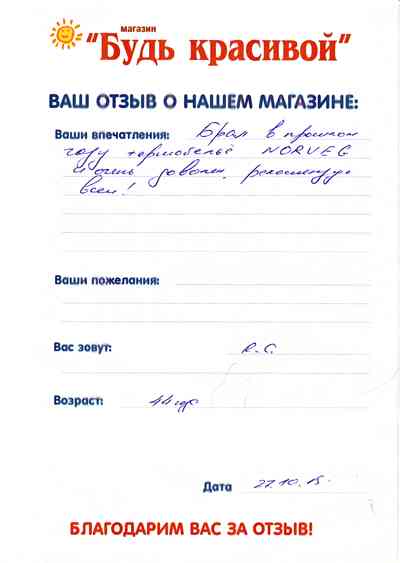 магазин
"Будь красивой"
ВАШ ОТЗЫВ О НАШЕМ МАГАЗИНЕ:
Ваши впечатления: Брал в прошлом
году термобельё NORVEG
и очень доволен, рекомендую
всем!
Ваши пожелания:
Вас зовут: К.С.
Возраст: 44 года
Дата 22.10.15.
БЛАГОДАРИМ ВАС ЗА ОТЗЫВ!